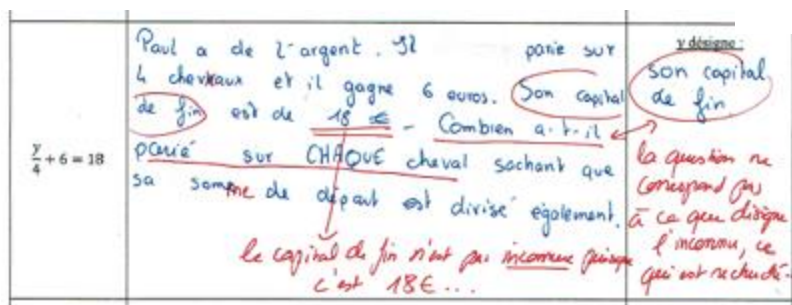 y/4 + 6 = 18
Paul a de l'argent. Il parie sur
4 chevaux et il gagne 6 euros. Son capital
de fin est de 18 €. Combien a-t-il
parié sur CHAQUE cheval sachant que
sa somme de départ est divisé également.
le capital de fin n'est pas inconnue puisque
c'est 18€...
y désigne :
son capital
de fin
la question ne
correspond pas
à ce que désigne
l'inconnu, ce
qui est recherché.